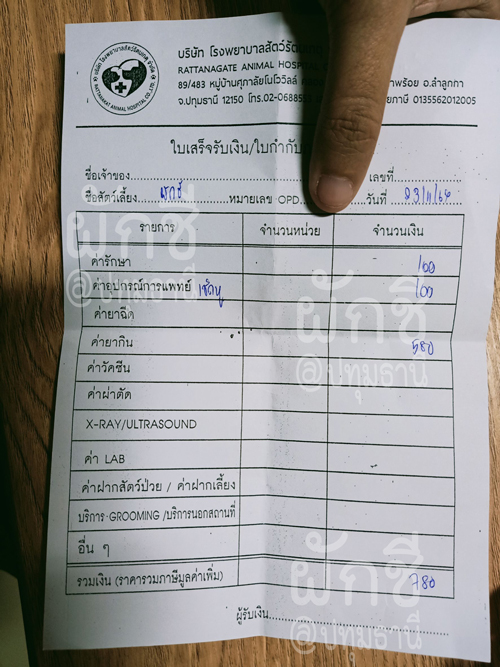 บริษัท โรงพยาบาลสัตว์รัตน
RATTANAGATE ANIMAL HOSPITAL
89/483 หมู่บ้านศุภาลัยโนโววิลล์ พร้อย อ.ลำลูกกา
จ.ปทุมธานี 12150 โทร.02-068855 ภาษี 0135562012005
ใบเสร็จรับเงิน/ใบกำกับ
ชื่อเจ้าของ เลขที่
ชื่อสัตว์เลี้ยง หมายเลข OPD. วันที่ 23/11/64
รายการ จำนวนหน่วย จำนวนเงิน
ค่ารักษา 100
ค่าอุปกรณ์การแพทย์ เช็ดหู 100
ค่ายาฉีด
ค่ายากิน 580
ค่าวัคซีน
ค่าผ่าตัด
X-RAY/ULTRASOUND
ค่า LAB
ค่าฝากสัตว์ป่วย / ค่าฝากเลี้ยง
บริการ GROOMING /บริการนอกสถานที่
อื่น ๆ
รวมเงิน (ราคารวมภาษีมูลค่าเพิ่ม) 780
ผู้รับเงิน
ผักชี
@ปทุมธานี
ผักชี
@ปทุมธานี
ผักชี
@ปทุมธานี